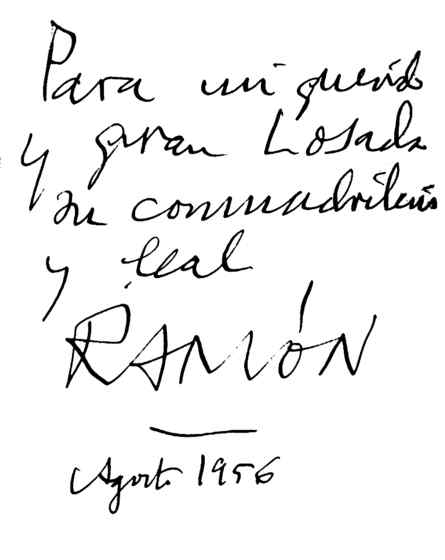 Para mi querido
y gran Losada
su conmadrileño
y leal
RAMÓN
Agosto 1956